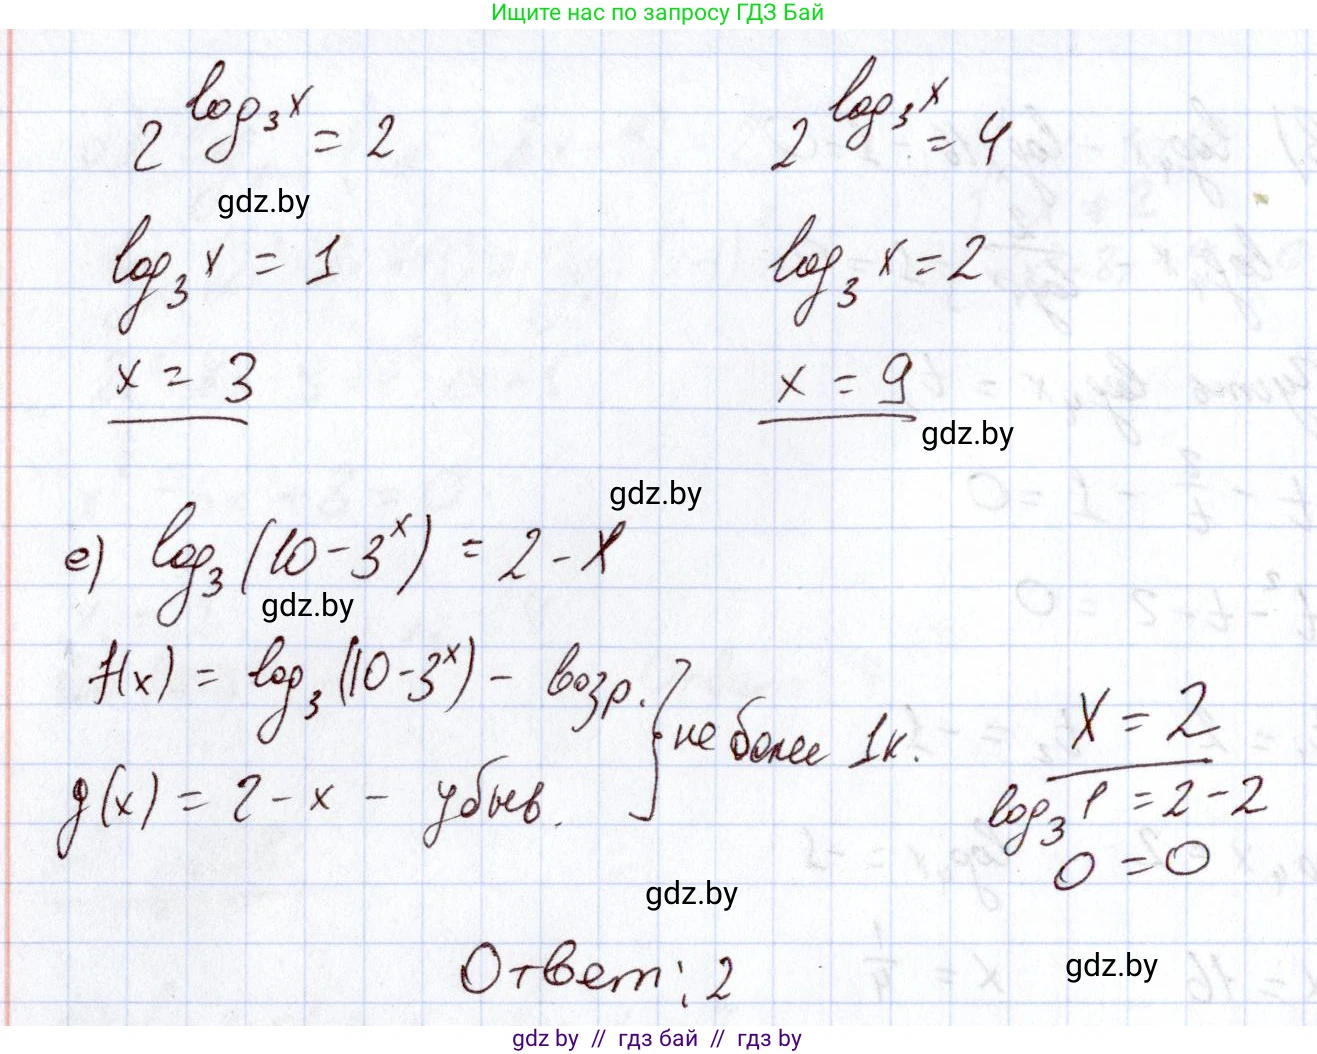 Ищите нас по запросу ГДЗ Бай
2^{log_3 x} = 2
2^{log_3 x} = 4
gdz.by
log_3 x = 1
log_3 x = 2
x = 3
x = 9
gdz.by
gdz.by
е) log_3(10 - 3^x) = 2 - x
gdz.by
f(x) = log_3(10 - 3^x) - возр.
g(x) = 2 - x - убыв.
} не более 1к.
x = 2
log_3 1 = 2 - 2
0 = 0
gdz.by
Ответ: 2
gdz.by
gdz by // гдз бай // гдз by